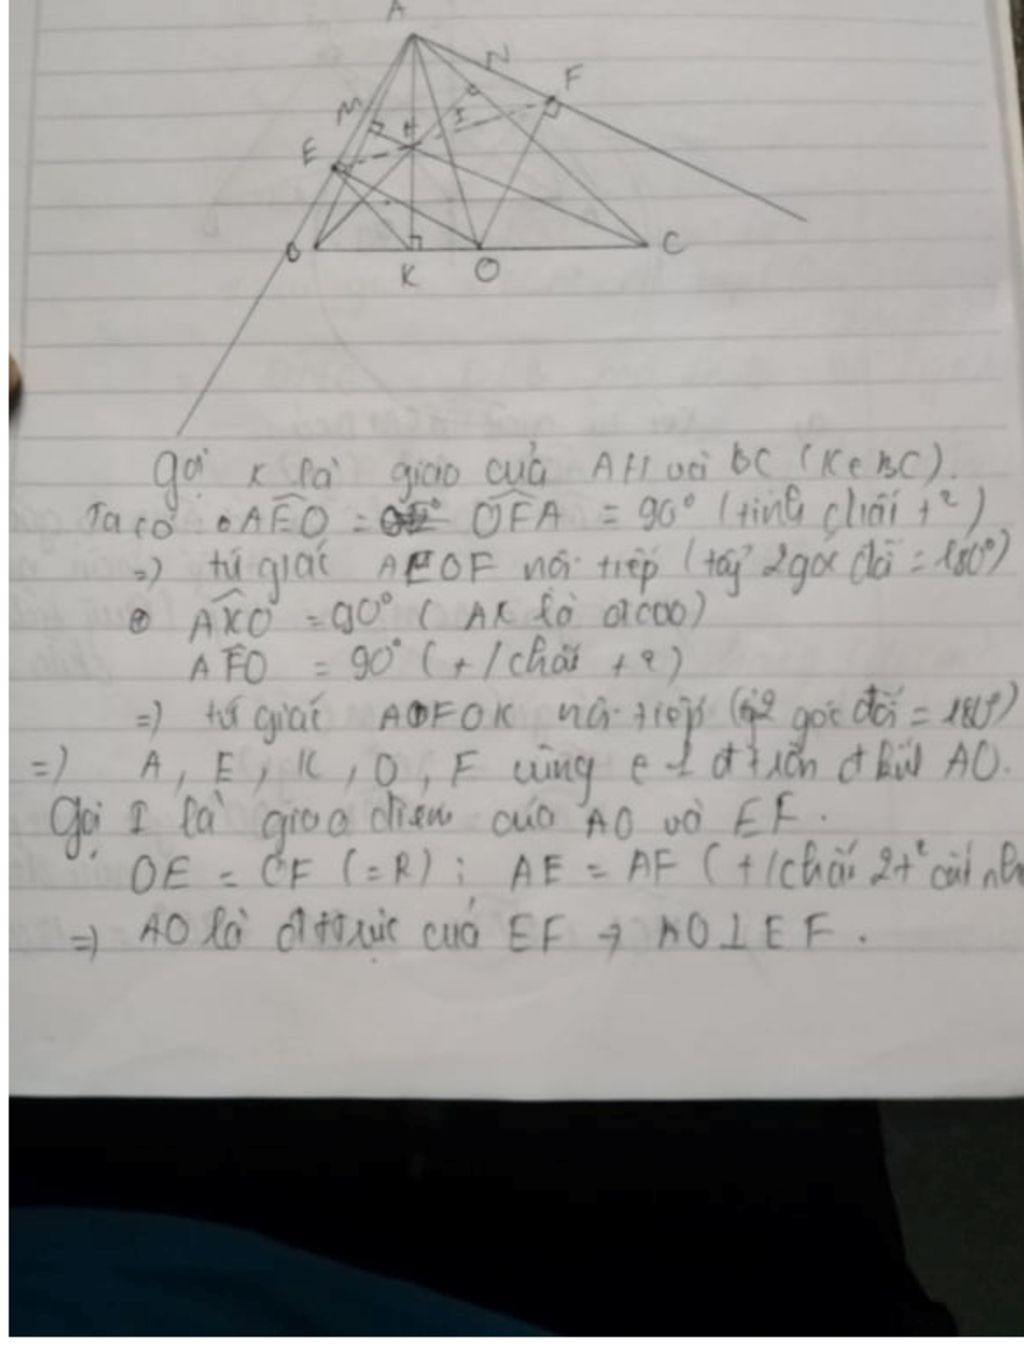 A
N
F
M
H
I
E
B
K
O
C
Gọi K là giao của AH với BC (K∈BC).
Ta có AÊO = OF̂A = 90° (tính chất t²)
=) tứ giác AEOF nội tiếp (tổng 2 góc đối = 180°)
AK̂O = 90° (AK là đcao)
AF̂O = 90° (t/chất t²)
=) tứ giác AFOK nội tiếp ( góc đối = 180°)
=) A, E, K, O, F cùng ∈ 1 đtròn đkính AO.
Gọi I là giao điểm của AO và EF.
OE = OF (=R); AE = AF (t/chất 2t² cắt nh
=) AO là đttrực của EF → AO⊥EF.